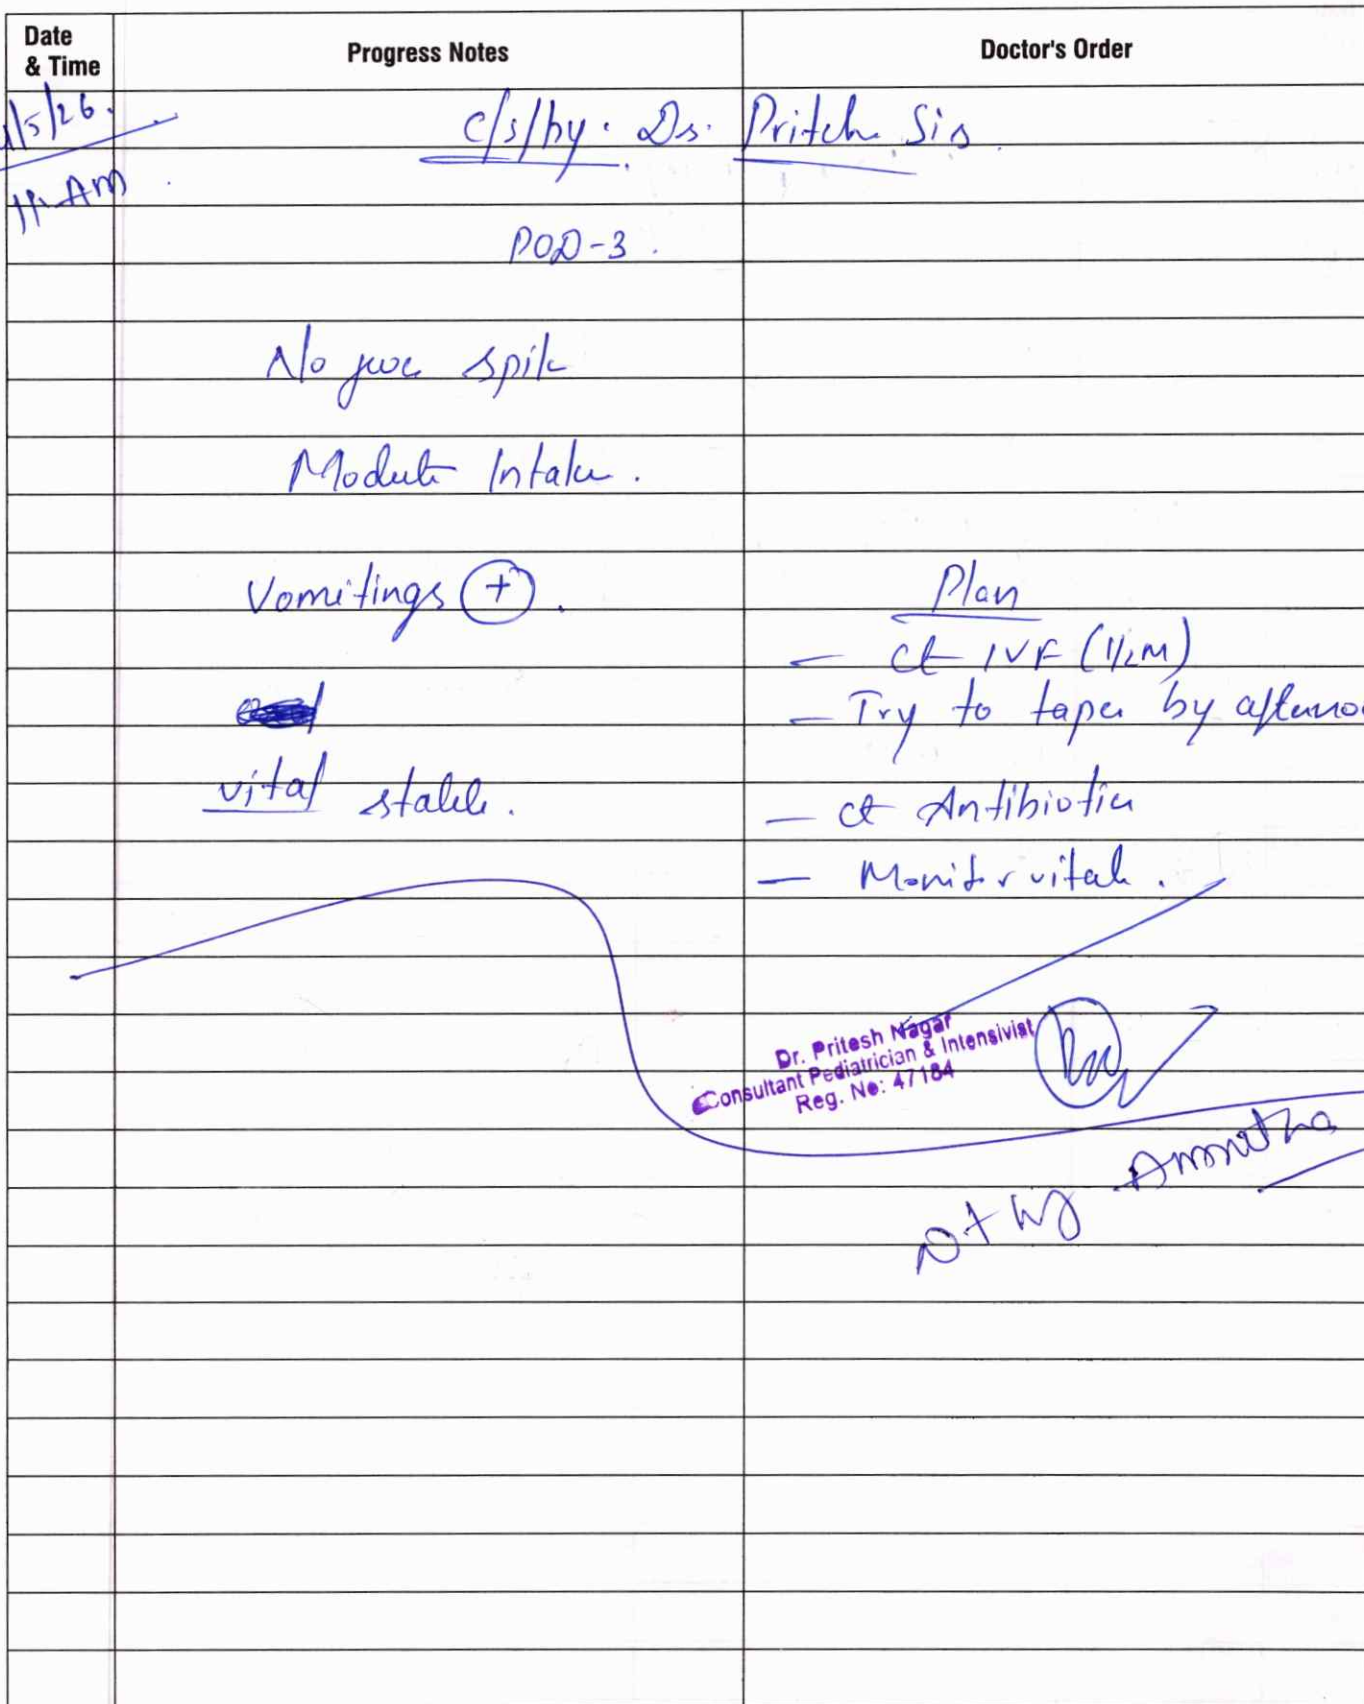 Date
& Time
Progress Notes
Doctor's Order
1/5/26.
11. AM
c/s/by. Dr. Pritesh Sir
POD-3.
No fever spike
Moderate Intake.
Vomitings (+).
vital stable.
Plan
- ct IVF (1/2M)
- Try to taper by afterno
- ct Antibiotics
- Monitor vitals.
Dr. Pritesh Nagar
Consultant Pediatrician & Intensivist
Reg. No: 47184
by Amrutha